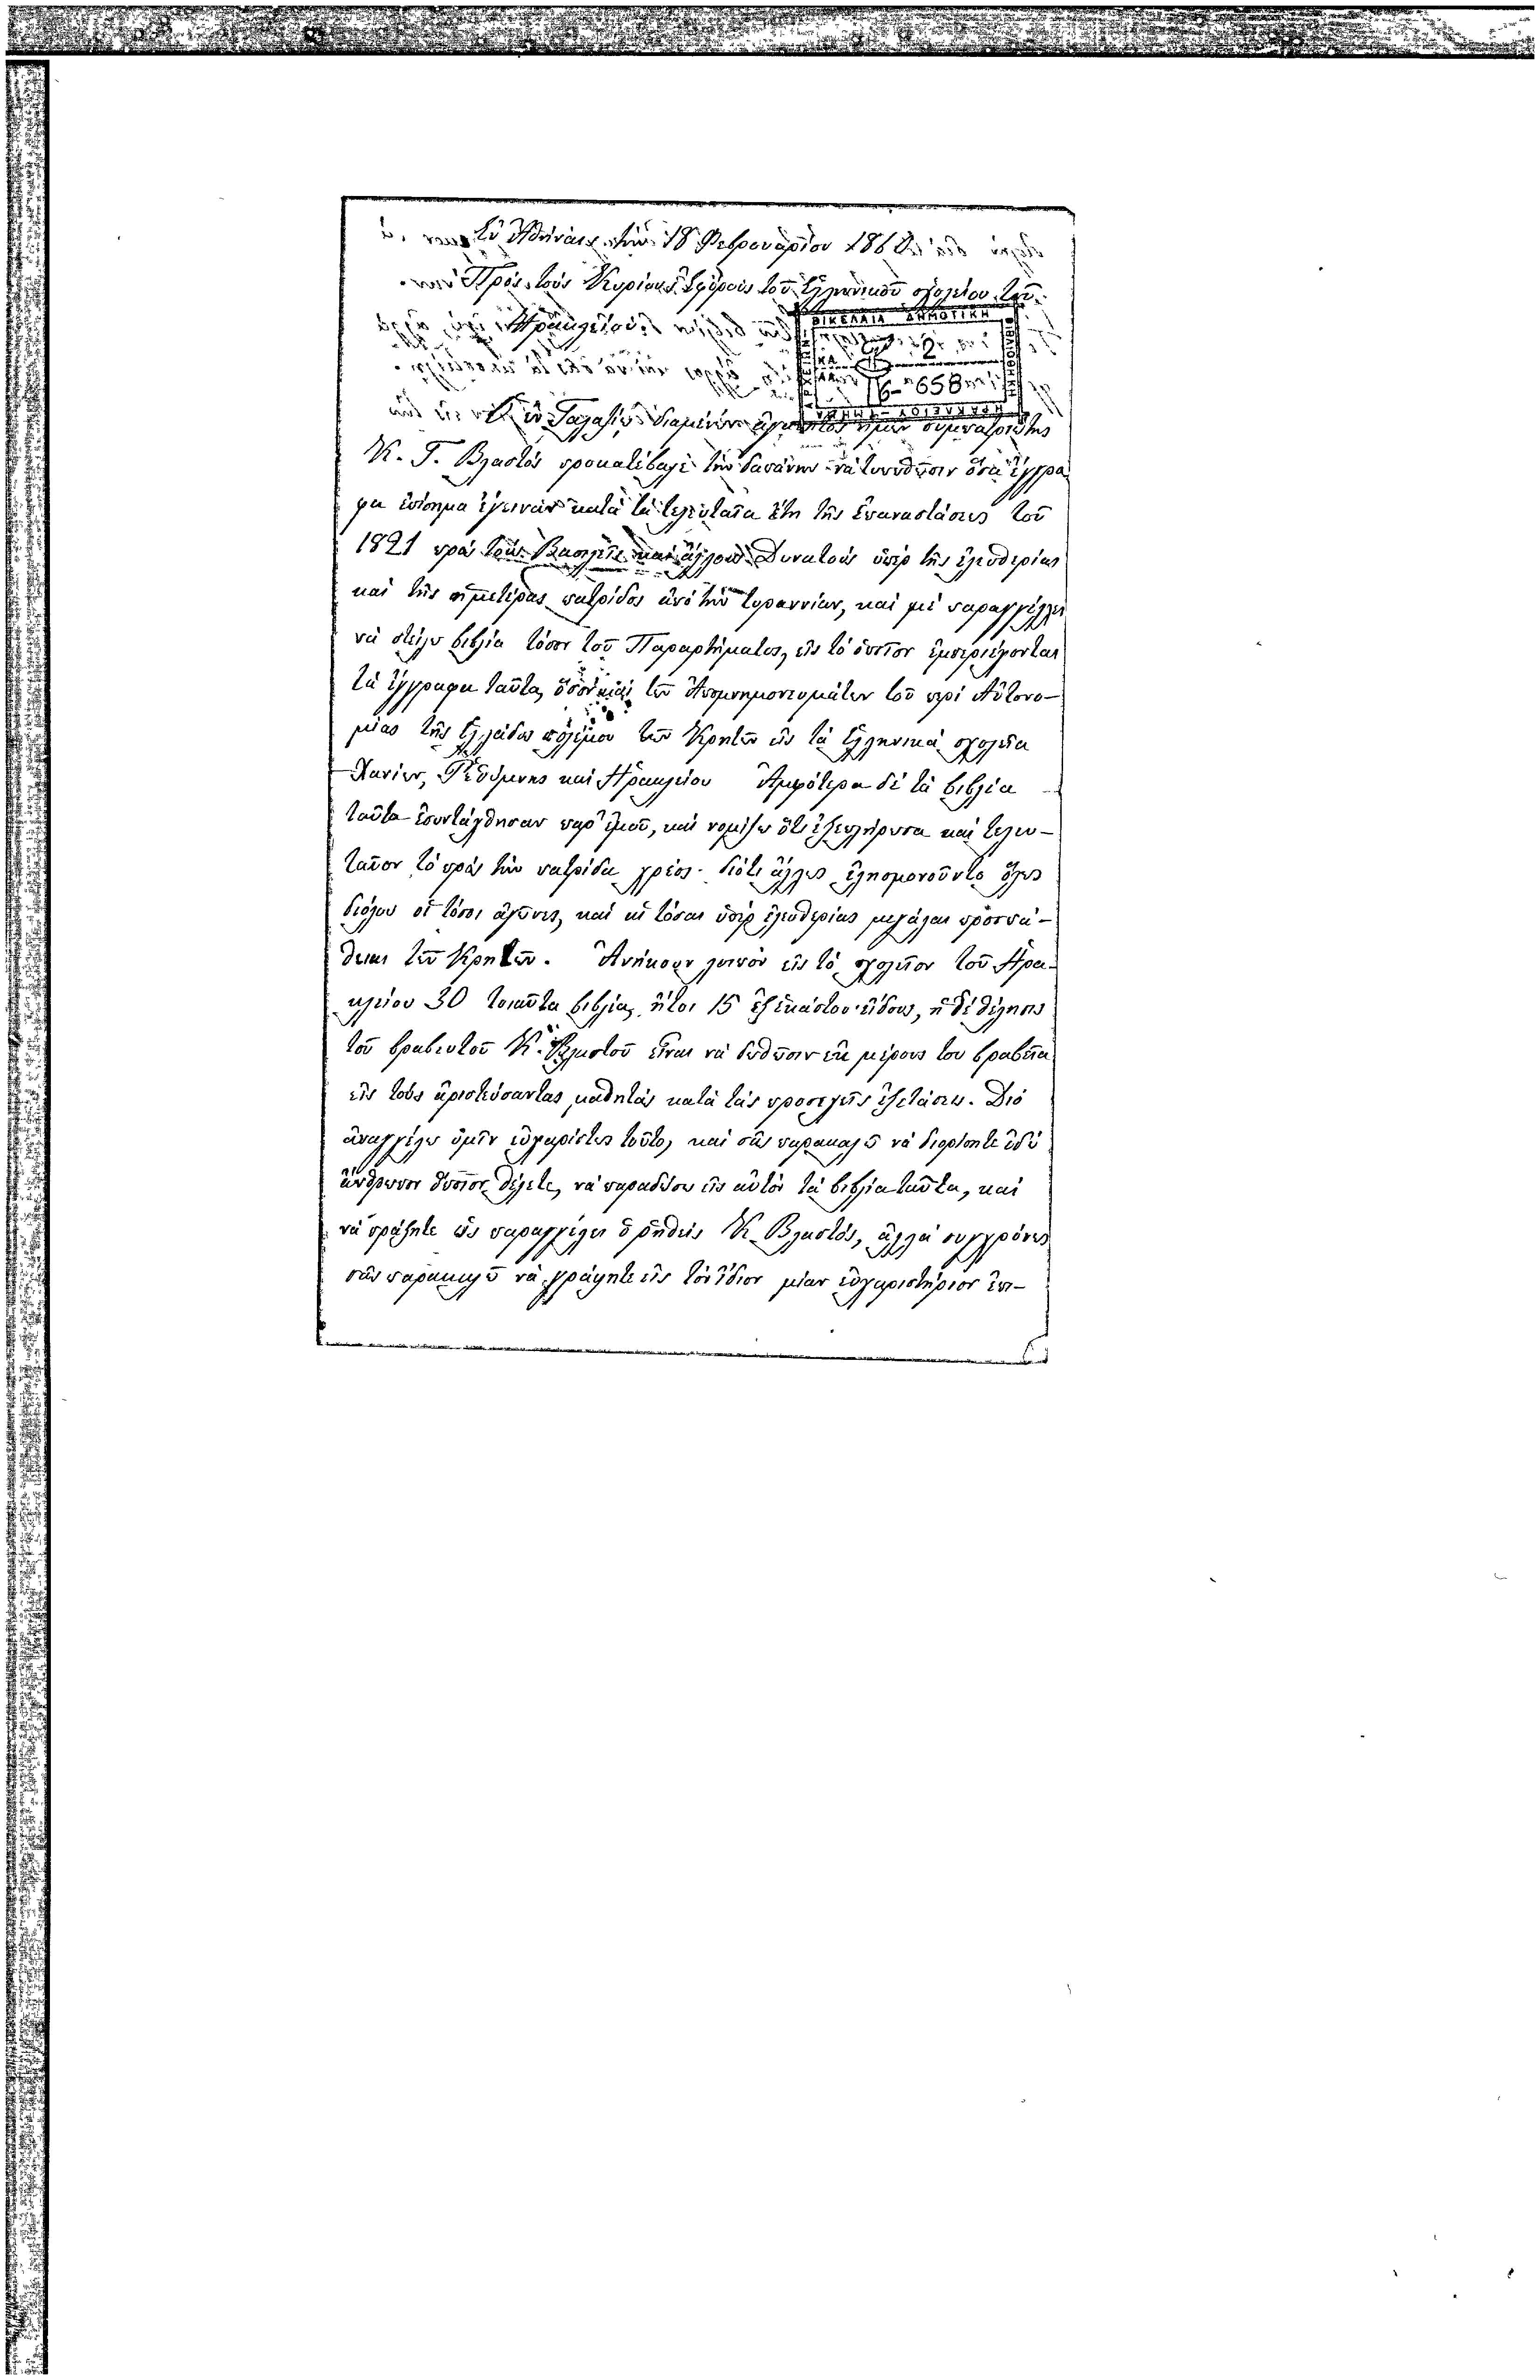 Ἐν Ἀθήναις τὴν 18 Φεβρουαρίου 186
Πρὸς τοὺς Κυρίους Ἐφόρους τοῦ Ἑλληνικοῦ σχολείου τοῦ
Ἡρακλείου
ΒΙΚΕΛΑΙΑ ΔΗΜΟΤΙΚΗ
2
16-658
Ὁ ἐν Γαλαζίῳ διαμένων ἡμῶν συμπατριώτης
Κ. Γ. Βλαστός προκατέβαλε τὴν δαπάνην νὰ τυπωθῶσιν ὅσα ἔγγρα
φα ἐπίσημα ἔγειναν κατὰ τὰ τελευταῖα ἔτη τῆς ἐπαναστάσεως τοῦ
1821 πρὸς τοὺς Βασιλεῖς καὶ ἄλλους Δυνατοὺς ὑπὲρ τῆς ἐλευθερίας
καὶ τῆς ἡμετέρας πατρίδος ἀπὸ τὴν τυραννίαν, καὶ μὲ παραγγέλλει
νὰ στείλω βιβλία τόσον τοῦ Παραρτήματος, εἰς τὸ ὁποῖον ἐμπεριέχονται
τὰ ἔγγραφα ταῦτα, ὅσον καὶ τῶν Ἀπομνημονευμάτων τοῦ περὶ Αὐτονο-
μίας τῆς Ἑλλάδος πολέμου τῶν Κρητῶν εἰς τὰ Ἑλληνικὰ σχολεῖα
Χανίων, Ῥεθύμνης καὶ Ἡρακλείου Ἀμφότερα δὲ τὰ βιβλία
ταῦτα ἐσυντάχθησαν παρ' ἐμοῦ, καὶ νομίζω ὅτι ἐξεπλήρωσα καὶ τελευ-
ταῖον τὸ πρὸς τὴν πατρίδα χρέος· διότι ἄλλως ἐλησμονοῦντο ὅλως
διόλου οἱ τόσοι ἀγῶνες, καὶ αἱ τόσαι ὑπὲρ ἐλευθερίας μεγάλαι προσπά-
θειαι τῶν Κρητῶν. Ἀνήκουν λοιπὸν εἰς τὸ σχολεῖον τοῦ Ἡρα-
κλείου 30 τοιαῦτα βιβλία, ἤτοι 15 ἐξ ἑκάστου εἴδους, ἡ δὲ θέλησις
τοῦ βραβευτοῦ Κ. Βλαστοῦ εἶναι νὰ δοθῶσιν ἐκ μέρους του βραβεῖα
εἰς τοὺς ἀριστεύσαντας μαθητάς κατὰ τὰς προσεχεῖς ἐξετάσεις. Διὸ
ἀναγγέλω ὑμῖν εὐχαρίστως τοῦτο, καὶ σᾶς παρακαλῶ νὰ διορίσητε ἐδῶ
ἄνθρωπον ὁποῖον θέλετε, νὰ παραδώσω εἰς αὐτὸν τὰ βιβλία ταῦτα, καὶ
νὰ πράξητε ὡς παραγγέλει ὁ ῥηθεὶς Κ. Βλαστός, ἀλλὰ συγχρόνως
σᾶς παρακαλῶ νὰ γράψητε εἰς τὸν ἴδιον μίαν εὐχαριστήριον ἐπι-